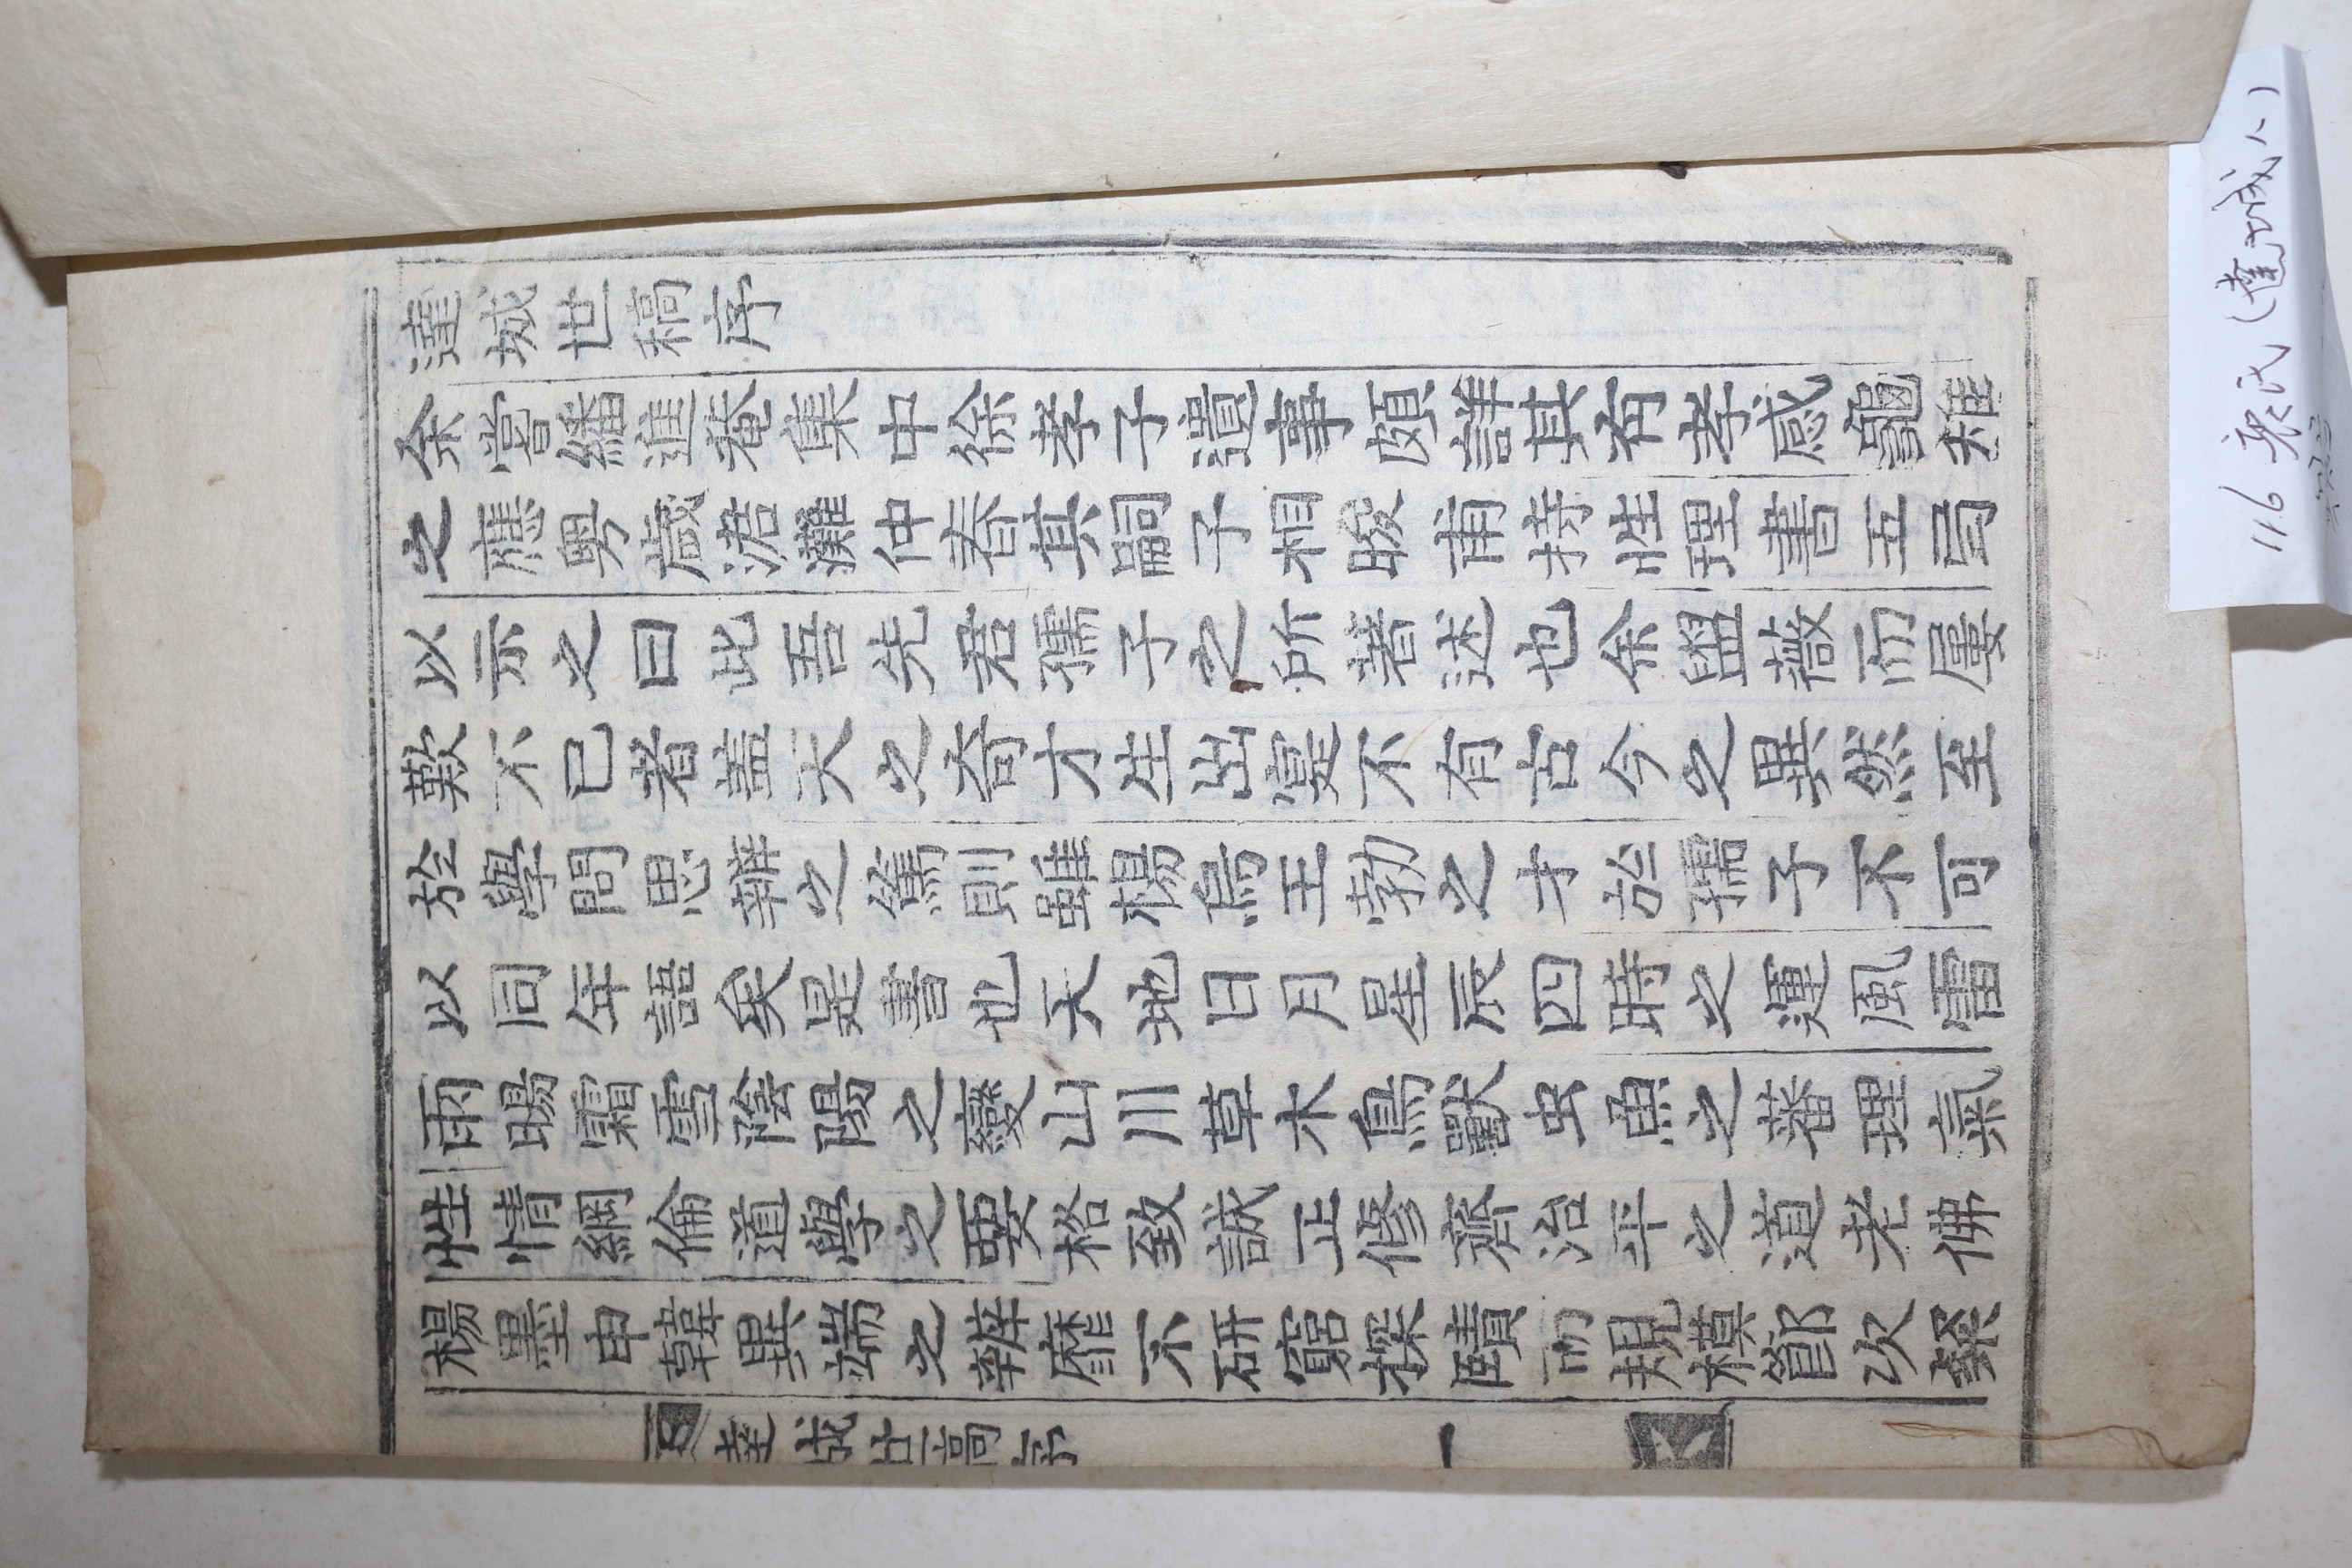 達城世稿序
余嘗繙進菴集中徐孝子遺事頗詳其有孝感龜雉
之應粤歲涒灘仲春其嗣子相晙甫持性理書五局
以示之曰此吾先君孺子之所著述也余盥薇而屢
歎不已者盖天之奇才生出寔不有古今之異然至
於學問思辨之篤則雖楊烏王勃之才於孺子不可
以同年語矣是書也天地日月星辰四時之運風雷
雨暘霜雪陰陽之變山川草木鳥獸虫魚之蕃理氣
性情綱倫道學之要格致誠正修齊治平之道老佛
楊墨申韓異端之辨靡不硏窮探賾而規模節次粲
達城世稿序
一
116 裵氏(達城人)